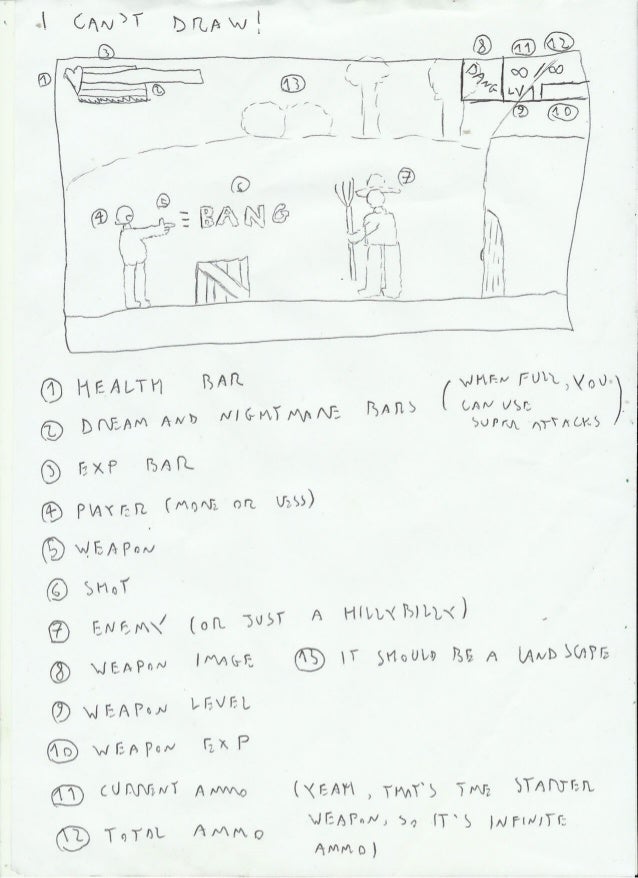 I CAN'T DRAW!
3
8 11 12
1
BANG ∞ / ∞
2
13
LV
9 10
6
7
5
4
BANG
1 HEALTH BAR
2 DREAM AND NIGHTMARE BARS (WHEN FULL, YOU
CAN USE
SUPER ATTACKS)
3 EXP BAR
4 PLAYER (MORE OR LESS)
5 WEAPON
6 SHOT
7 ENEMY (OR JUST A HILLYBILLY)
8 WEAPON IMAGE 13 IT SHOULD BE A LANDSCAPE
9 WEAPON LEVEL
10 WEAPON EXP
11 CURRENT AMMO (YEAH, THAT'S THE STARTER
WEAPON, SO IT'S INFINITE
12 TOTAL AMMO
AMMO)